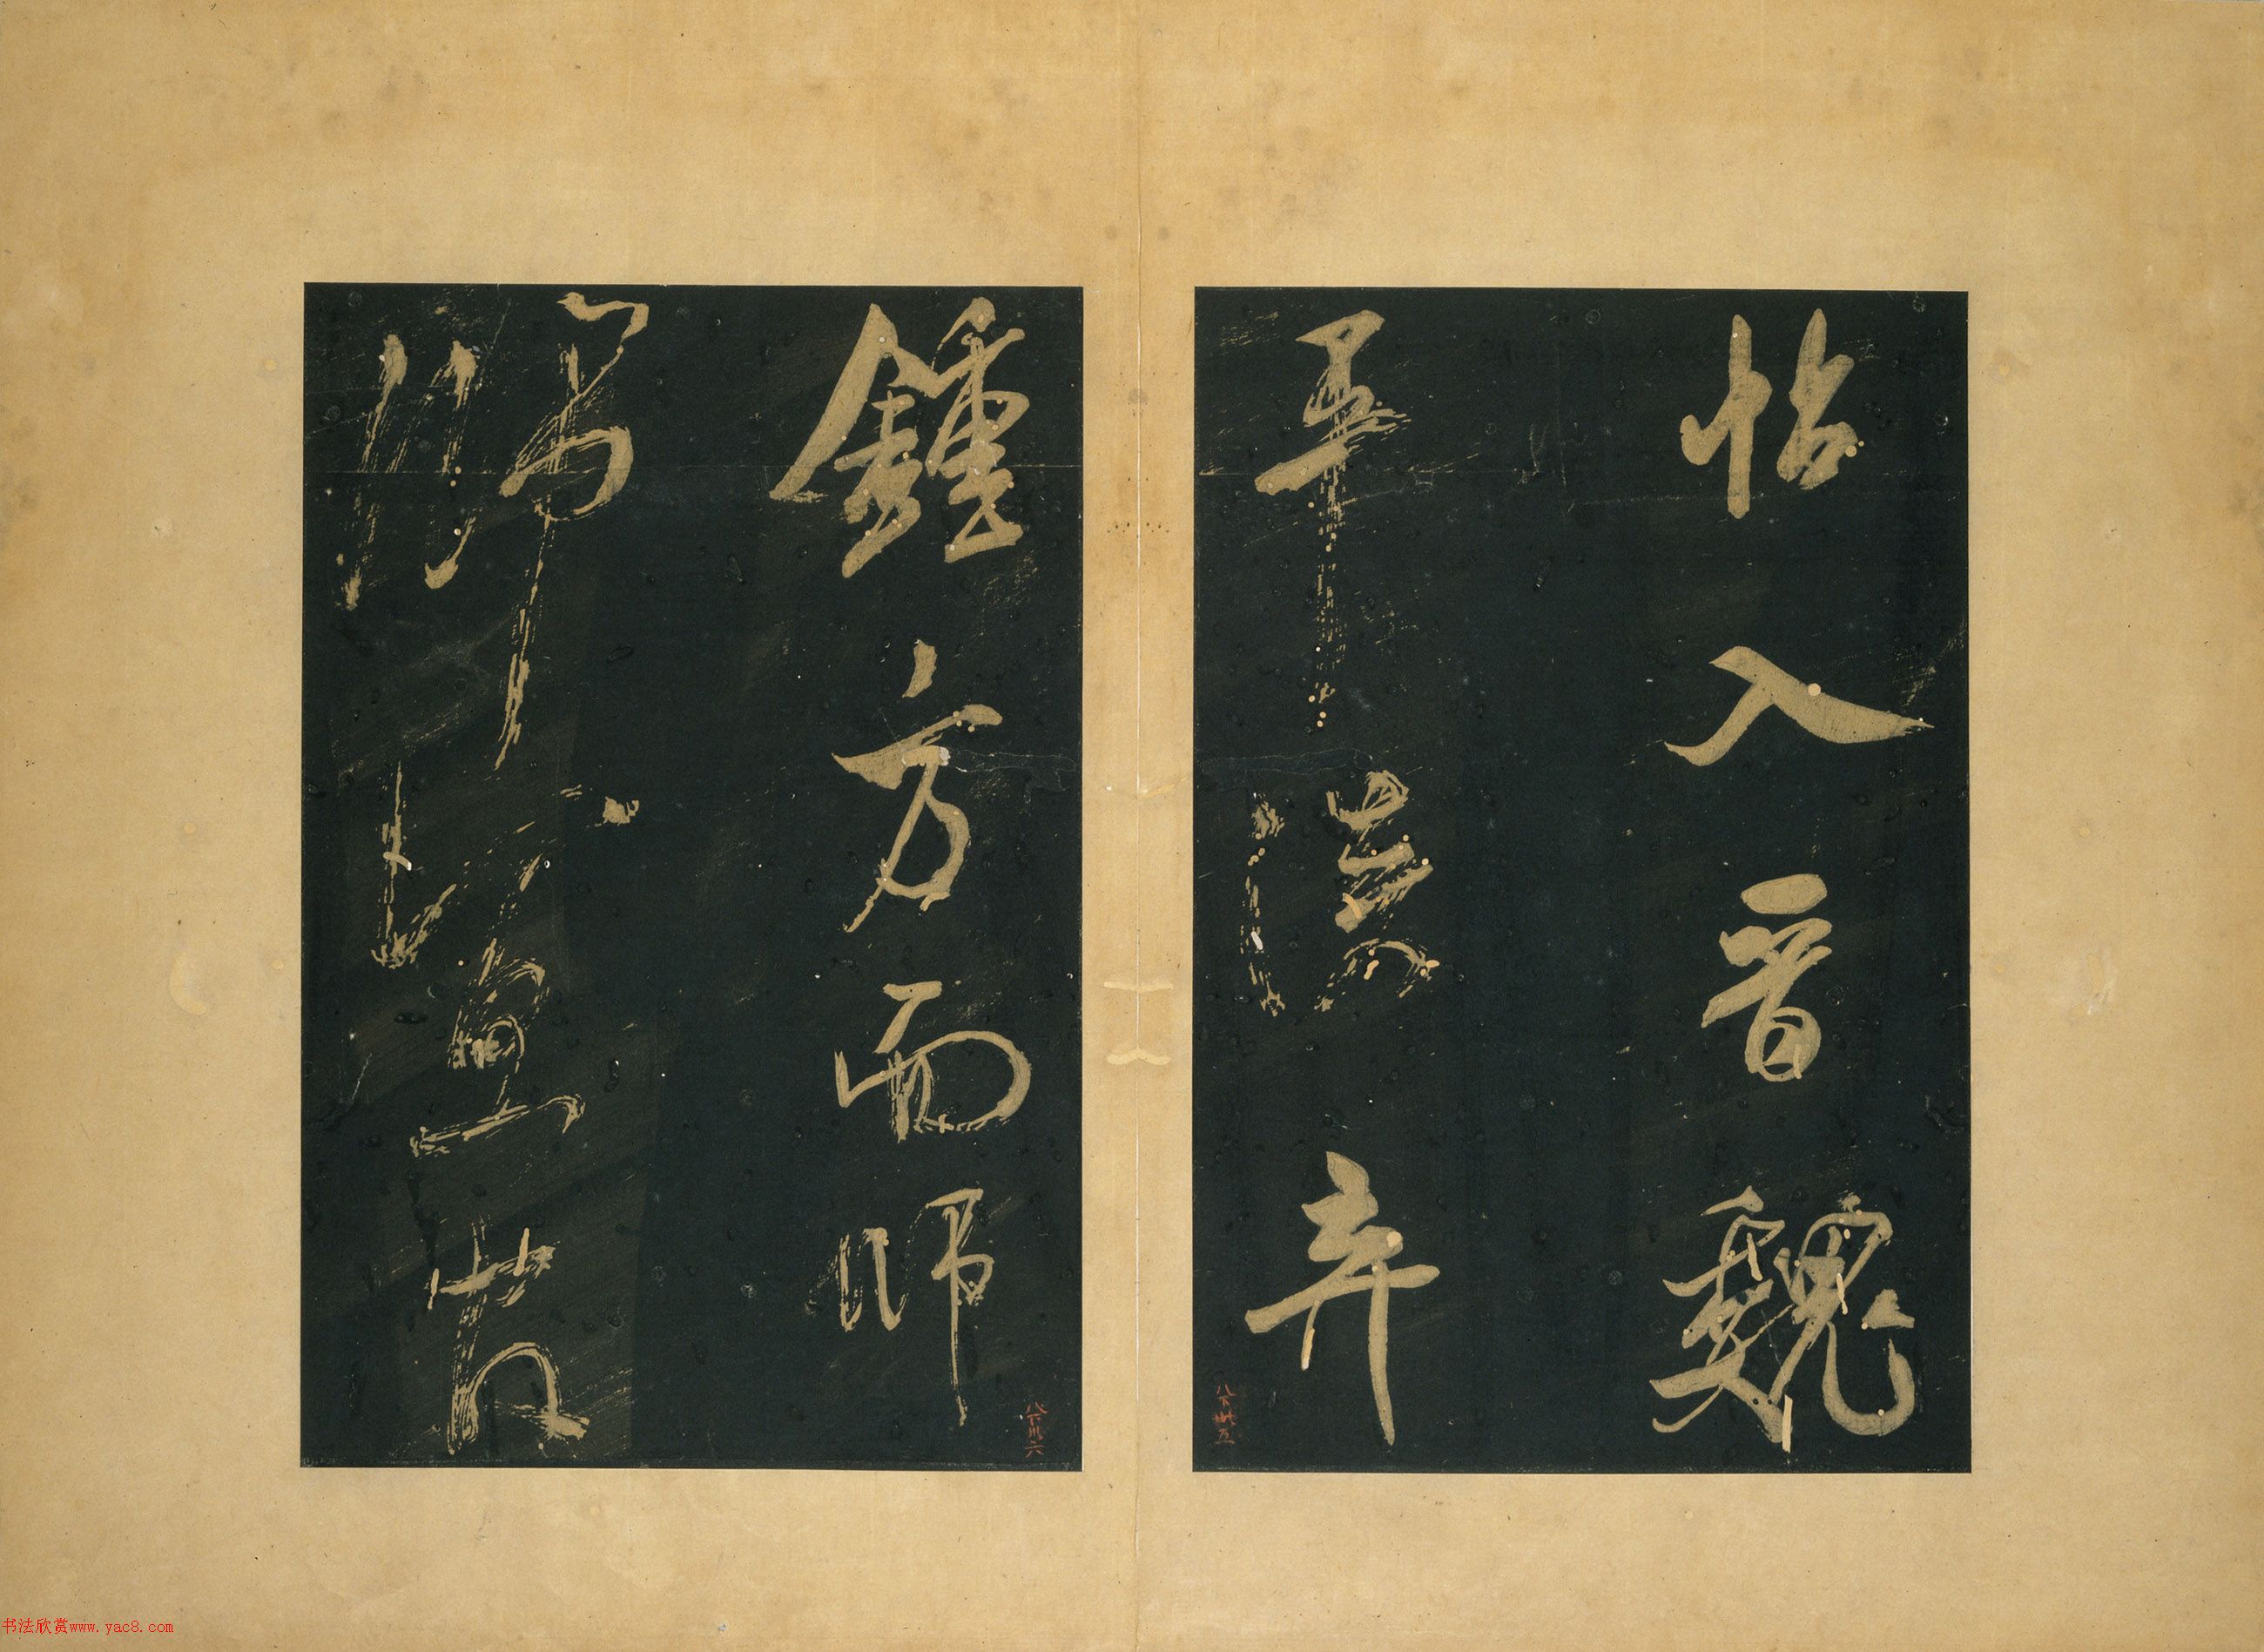 帖入晉魏
平淡弃
鍾方而師
師宜官
八下卅五
八下卅六
书法欣赏www.yac8.com